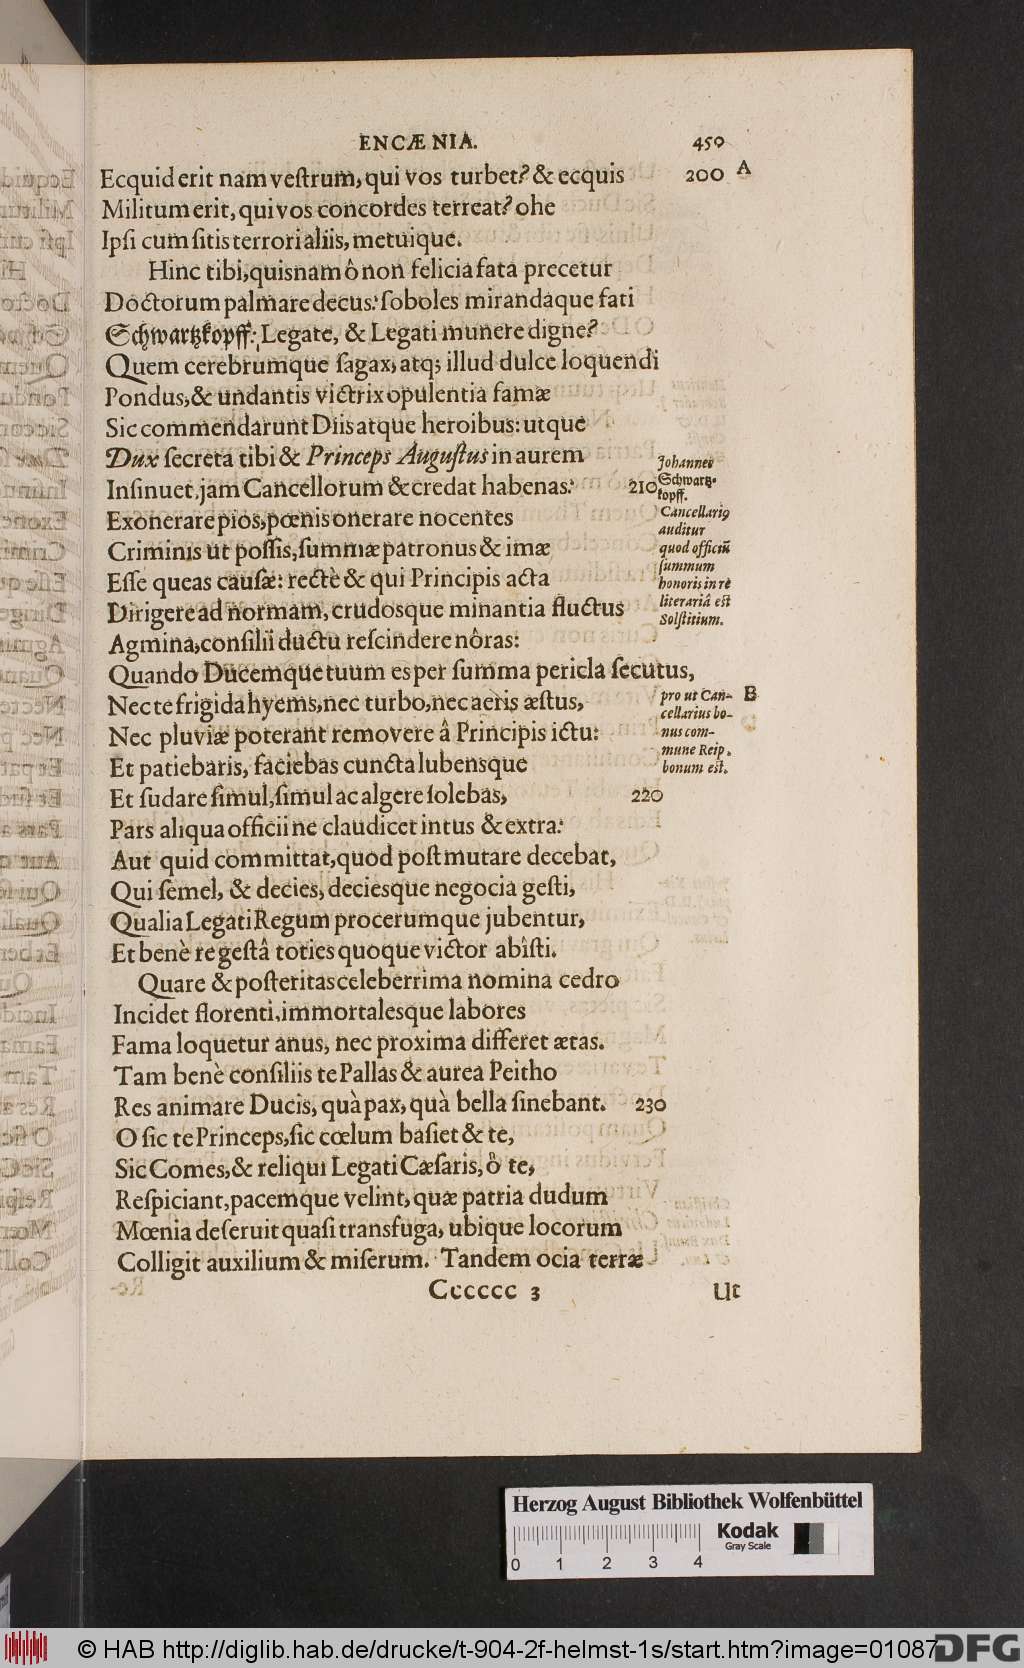 ENCÆNIA. 450
Ecquid erit nam veſtrum, qui vos turbet? & ecquis 200 A
Militum erit, qui vos concordes terreat? ohe
Ipſi cum ſitis terrori aliis, metuique.
Hinc tibi, quisnam ô non felicia fata precetur
Doctorum palmare decus: ſoboles mirandaque fati
Schwartzkopff: Legate, & Legati munere digne?
Quem cerebrumque ſagax, atq; illud dulce loquendi
Pondus, & undantis victrix opulentia famæ
Sic commendarunt Diis atque heroibus: utque
Dux ſecreta tibi & Princeps Auguſtus in aurem
Inſinuet, jam Cancellorum & credat habenas: 210
Exonerare pios, pœnis onerare nocentes
Criminis ut poſſis, ſummæ patronus & imæ
Eſſe queas cauſæ: rectè & qui Principis acta
Dirigere ad normam, crudosque minantia fluctus
Agmina, conſilii ductu reſcindere nôras:
Quando Ducemque tuum es per ſumma pericla ſecutus,
Nec te frigida hyems, nec turbo, nec aeris æſtus,
Nec pluviæ poterant removere â Principis ictu:
Et patiebaris, faciebas cuncta lubensque
Et ſudare ſimul, ſimul ac algere ſolebas, 220
Pars aliqua officii ne claudicet intus & extra:
Aut quid committat, quod poſt mutare decebat,
Qui ſemel, & decies, deciesque negocia geſti,
Qualia Legati Regum procerumque jubentur,
Et benè re geſtâ toties quoque victor abîſti.
Quare & poſteritas celeberrima nomina cedro
Incidet florenti, immortalesque labores
Fama loquetur anus, nec proxima differet ætas.
Tam benè conſiliis te Pallas & aurea Peitho
Res animare Ducis, quà pax, quà bella ſinebant. 230
O ſic te Princeps, ſic cœlum baſiet & te,
Sic Comes, & reliqui Legati Cæſaris, ô te,
Reſpiciant, pacemque velint, quæ patria dudum
Mœnia deſeruit quaſi transfuga, ubique locorum
Colligit auxilium & miſerum. Tandem ocia terræ
Cccccc 3 Ut
Johannes
Schwartz-
kopff.
Cancellariꝰ
auditur
quod officiũ
ſummum
honoris in re
literariâ eſt
Solſtitium.
pro ut Can- B
cellarius bo-
nus com-
mune Reip.
bonum eſt.
Herzog August Bibliothek Wolfenbüttel
0 1 2 3 4
Kodak
Gray Scale
© HAB http://diglib.hab.de/drucke/t-904-2f-helmst-1s/start.htm?image=01087
DFG